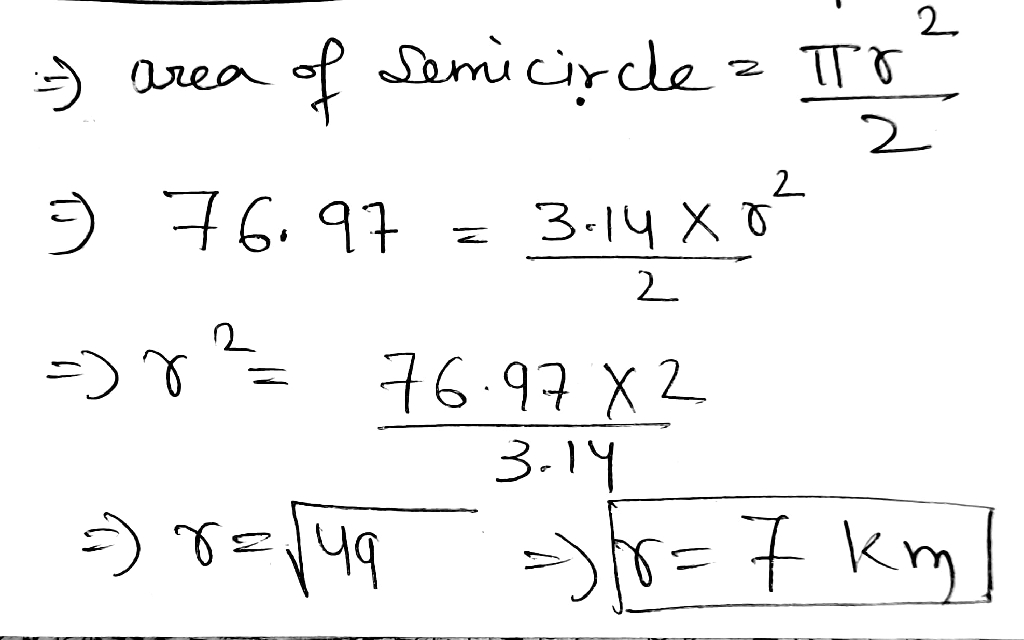 ⇒ area of semicircle = πr²/2
⇒ 76.97 = 3.14 × r²/2
⇒ r² = 76.97 × 2/3.14
⇒ r = √49 ⇒ r = 7 km